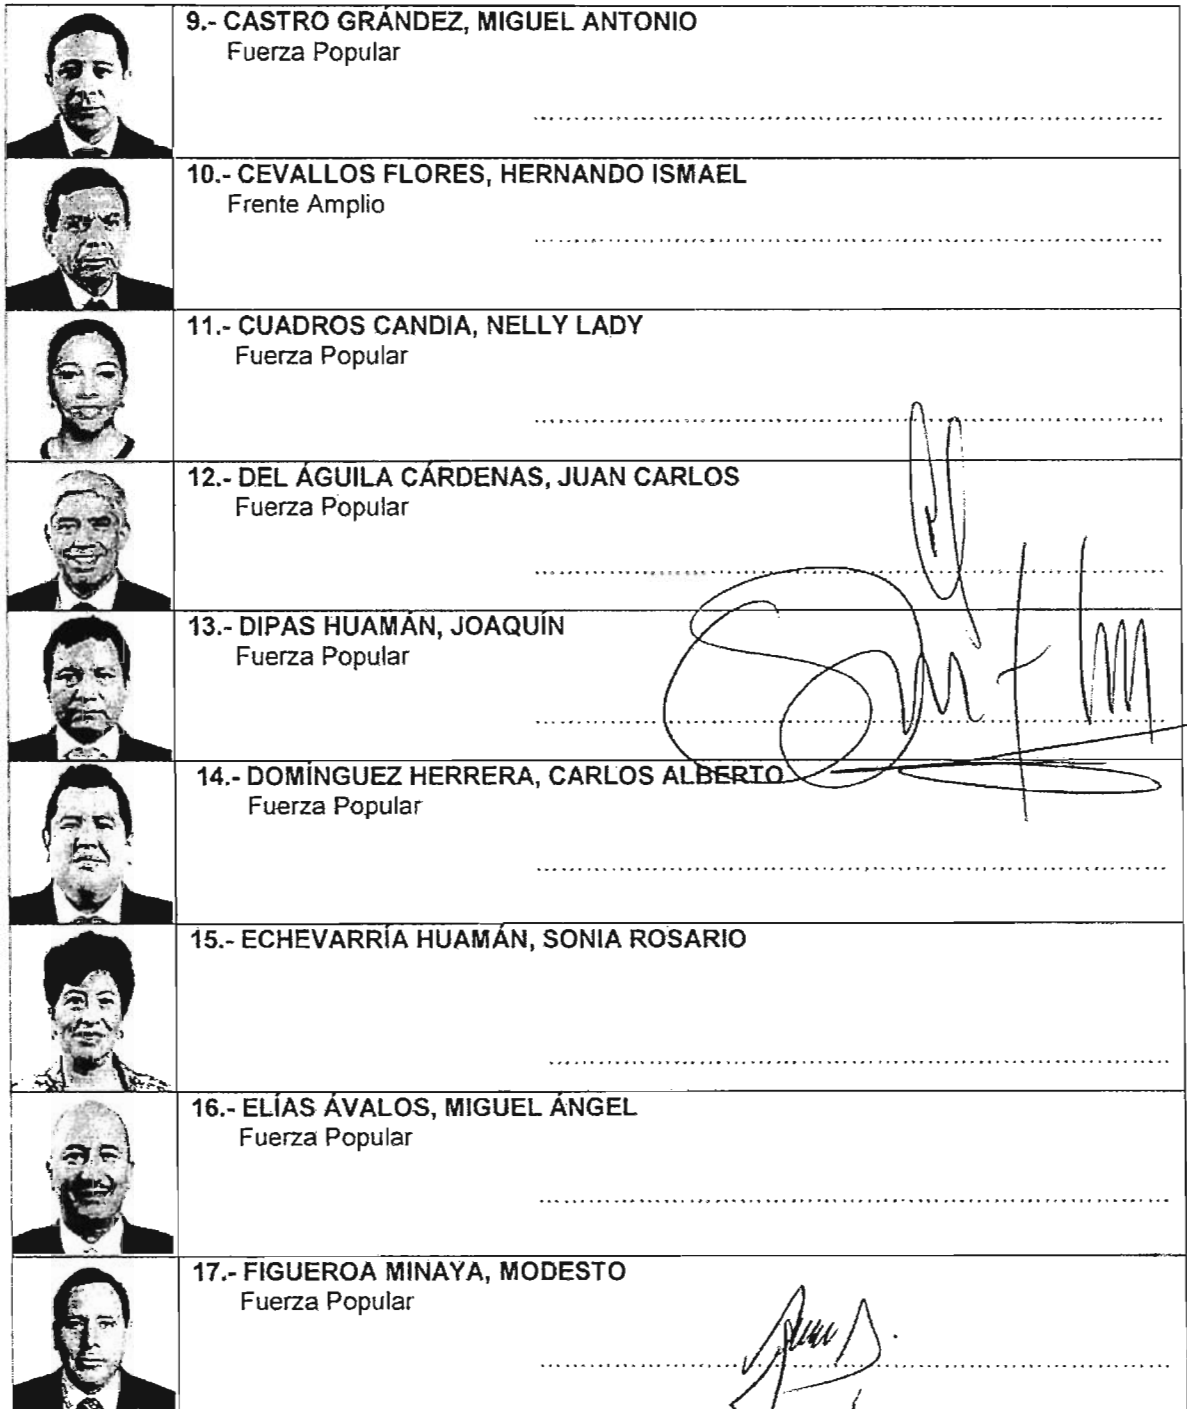 9.- CASTRO GRÁNDEZ, MIGUEL ANTONIO
Fuerza Popular
10.- CEVALLOS FLORES, HERNANDO ISMAEL
Frente Amplio
11.- CUADROS CANDIA, NELLY LADY
Fuerza Popular
12.- DEL ÁGUILA CÁRDENAS, JUAN CARLOS
Fuerza Popular
13.- DIPAS HUAMÁN, JOAQUÍN
Fuerza Popular
14.- DOMÍNGUEZ HERRERA, CARLOS ALBERTO
Fuerza Popular
15.- ECHEVARRÍA HUAMÁN, SONIA ROSARIO
16.- ELÍAS ÁVALOS, MIGUEL ÁNGEL
Fuerza Popular
17.- FIGUEROA MINAYA, MODESTO
Fuerza Popular